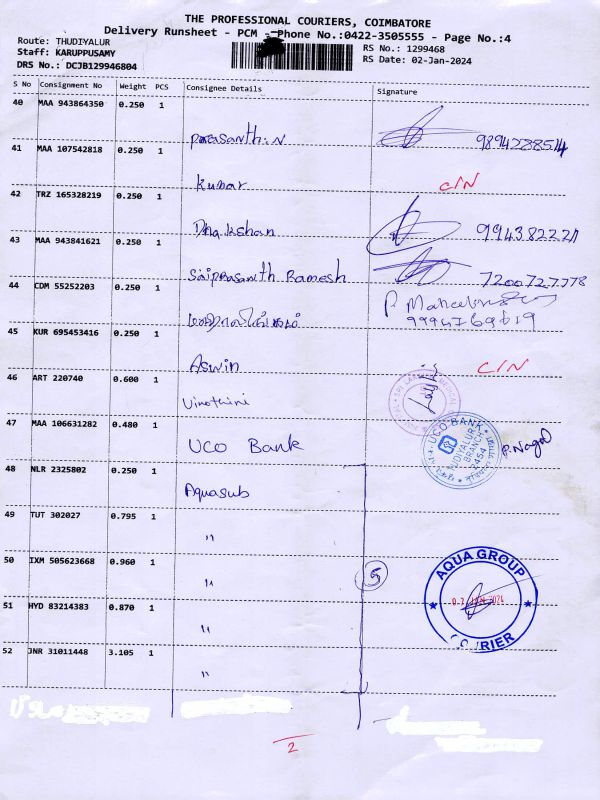 THE PROFESSIONAL COURIERS, COIMBATORE
Delivery Runsheet - PCM - Phone No.:0422-3505555 - Page No.:4
Route: THUDIYALUR
RS No.: 1299468
Staff: KARUPPUSAMY
RS Date: 02-Jan-2024
DRS No.: DCJB129946804
S No Consignment No Weight PCS Consignee Details Signature
40 MAA 943864350 0.250 1
Prasanth.N 9894288514
41 MAA 107542818 0.250 1
Kumar C/N
42 TRZ 165328219 0.250 1
Dhakshan 9943822271
43 MAA 941841621 0.250 1
Saiprasanth Ramesh 7200727778
44 CDM 55252203 0.250 1
P.
45 KUR 695453416 0.250 1
Aswin C/N
46 ART 220740 0.600 1
Vinothini
47 MAA 106631282 0.480 1
UCO Bank
UCO BANK
BRANCH
2454
P. Nagal
48 NLR 2325802 0.250 1
Aquasub
49 TUT 302027 0.795 1
"
50 IXM 505623668 0.960 1
" 5
AQUA GROUP
COURIER
51 HYD 83214383 0.870 1
"
52 JNR 31011448 3.105 1
"
2